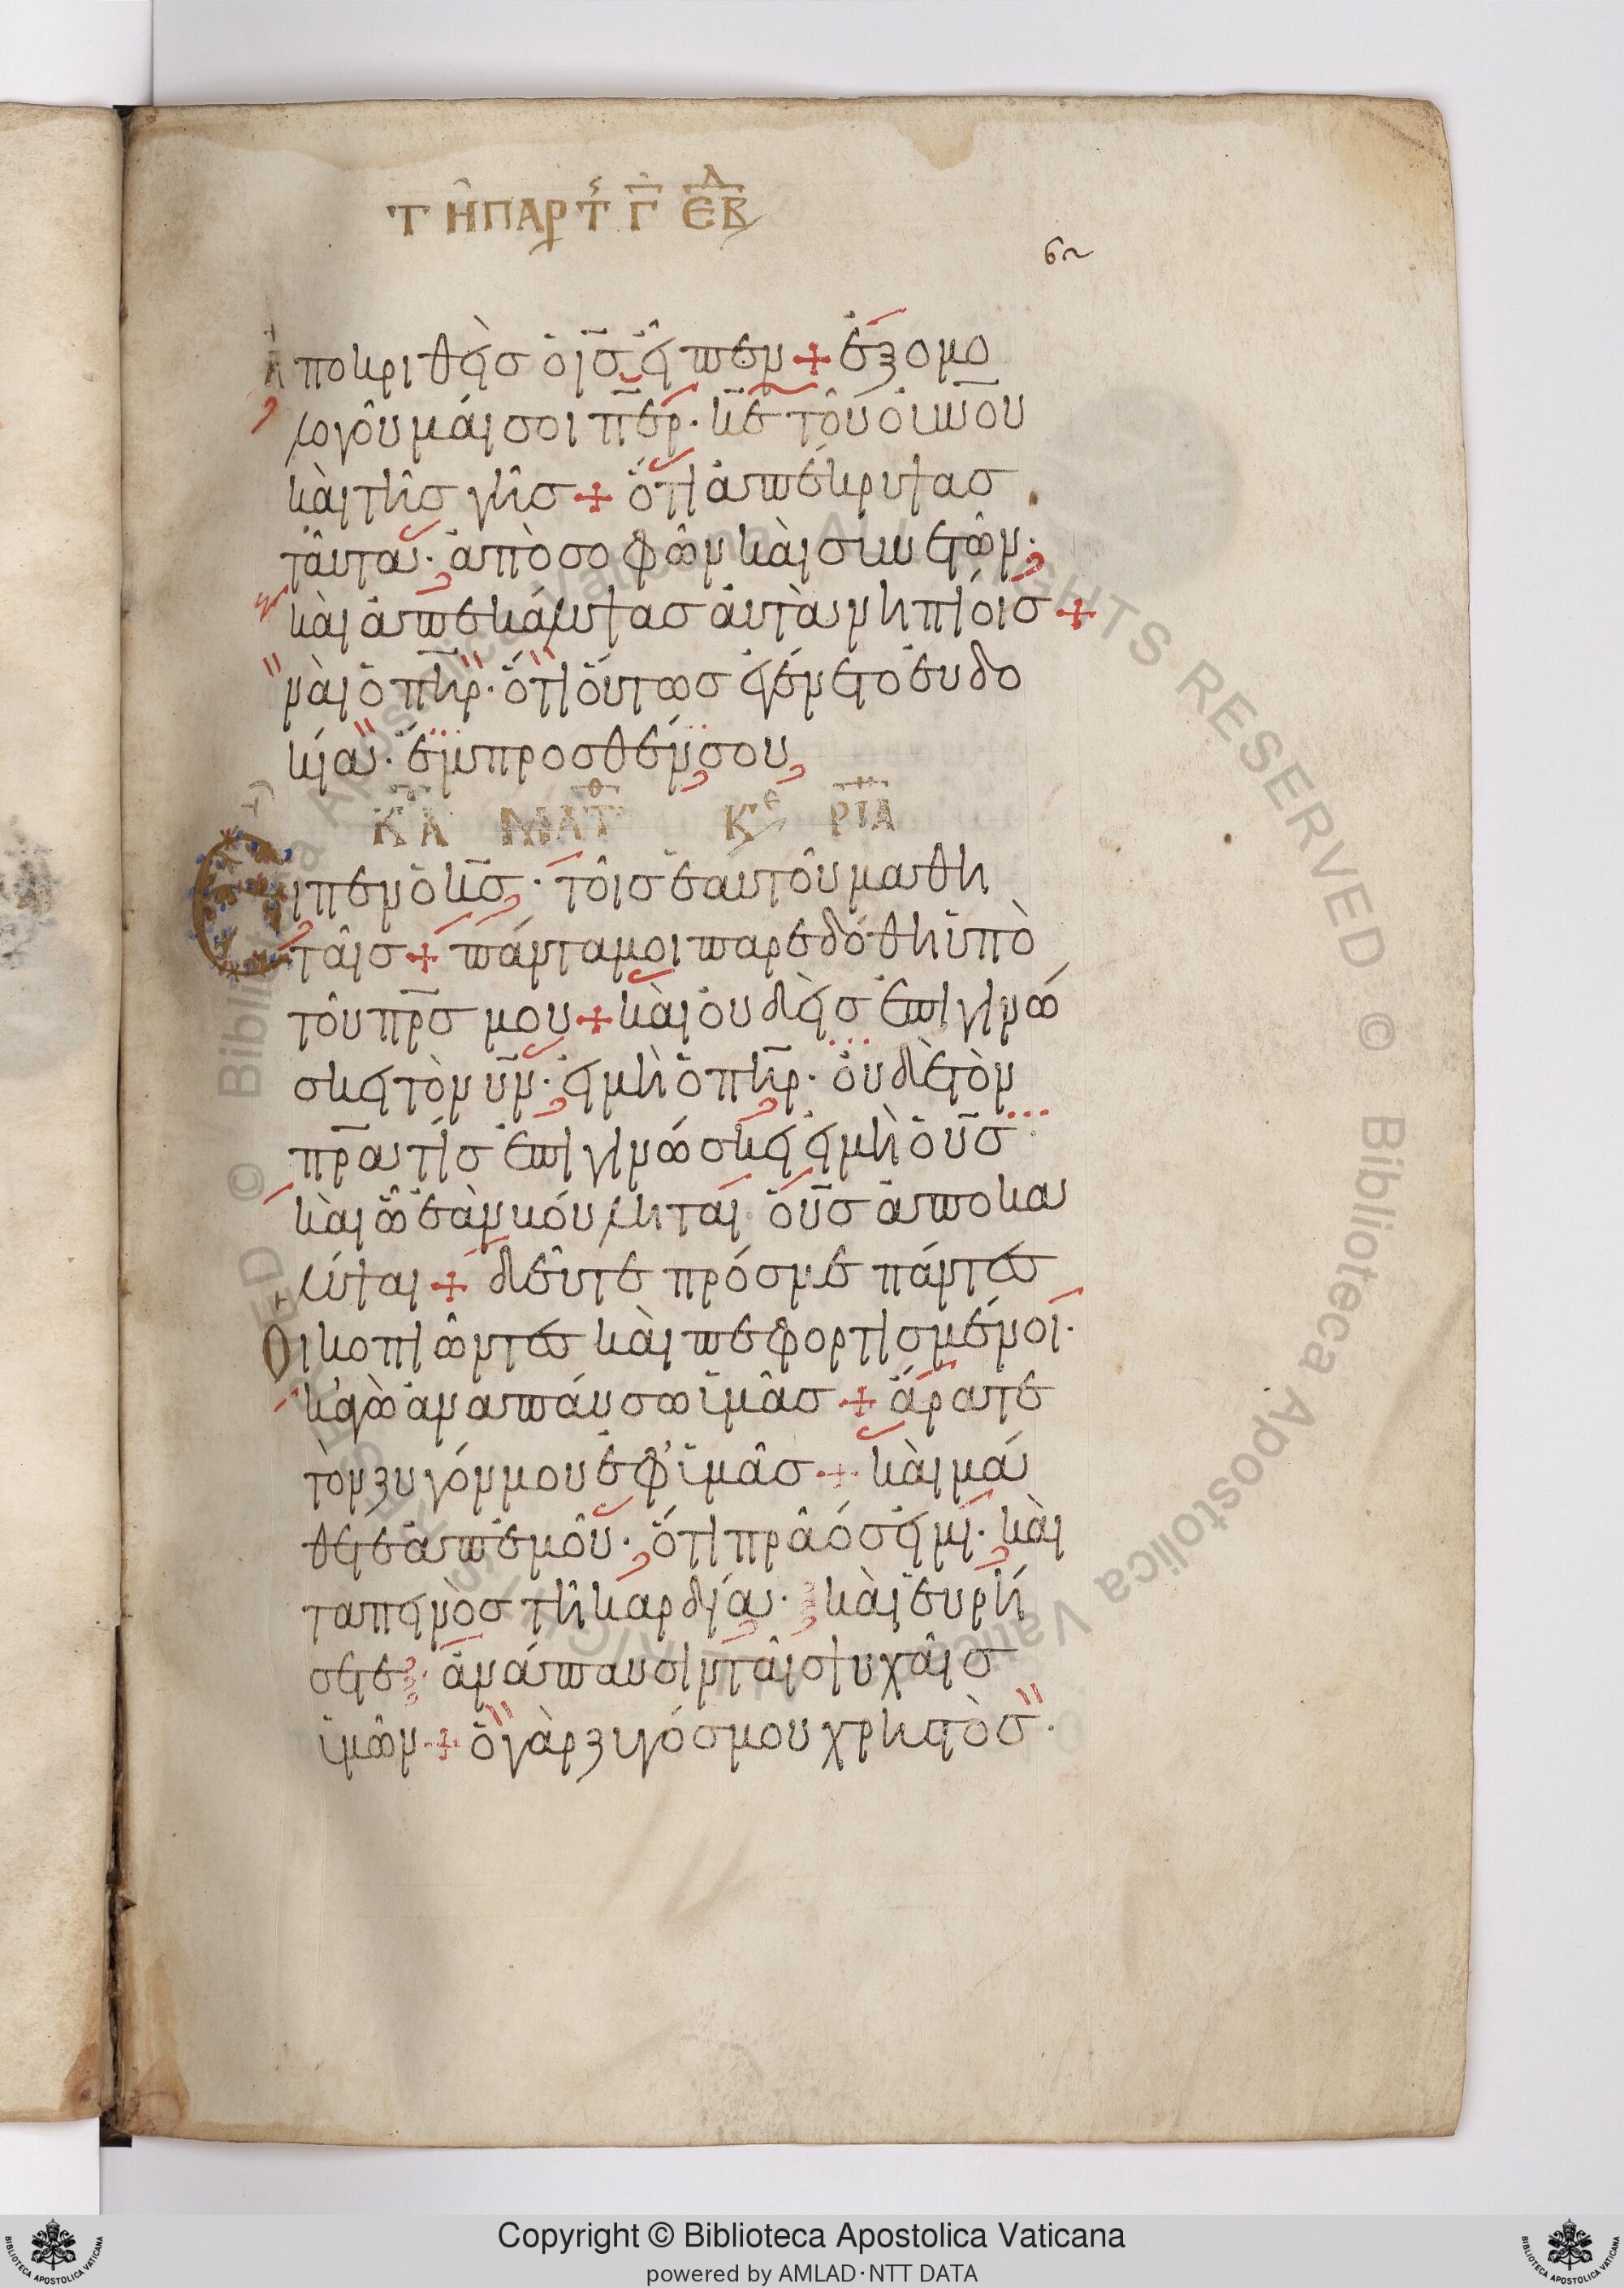 Τῌ ΠΑΡ Τ Γ ΕΒΔ
62
Ἀποκριθεὶσ ὁ ι̅σ̅ εἶπεν + ἐξομο
λογοῦμαί σοι π̅ε̅ρ̅· κ̅ε̅ τοῦ ο̅υ̅ν̅ο̅υ̅
καὶ τῆσ γῆσ + ὅτι ἀπέκρυψασ
ταῦτα· ἀπὸ σοφῶν καὶ συνετῶν·
καὶ ἀπεκάλυψασ ἀυτὰ νηπίοισ +
ναὶ ὁ π̅η̅ρ̅· ὅτι ὅυτωσ ἐγένετο ἐυδο
κία· ἔμπροσθέν σου
Κ̅Α̅ ΜΑΤΘ ΚΕ ΡΙΑ
Εἶπεν ὁ κ̅σ̅· τοῖσ ἑαυτοῦ μαθη
ταῖσ + πάντα μοι παρεδόθη ὑπὸ
τοῦ π̅ρ̅σ̅ μου + καὶ ὀυδεὶσ ἐπιγινώ
σκει τὸν υ̅ν̅· εἰ μὴ ὁ π̅η̅ρ̅· ὀυδὲ τὸν
π̅ρ̅α̅ τίσ ἐπιγινώσκει εἰ μὴ ὁ υ̅σ̅
καὶ ὧ ἐὰν βούληται ὁ υ̅σ̅ ἀποκα
λύψαι + δεῦτε πρόσ με πάντεσ
Οἱ κοπιῶντεσ καὶ πεφορτισμένοι·
κἀγὼ ἀναπάυσω ὑμᾶσ + ἄρατε
τὸν ζυγόν μου ἐφ' ὑμᾶσ + καὶ μά
θετε ἀπ' ἐμοῦ· ὅτι πρᾶόσ εἰμι· καὶ
ταπεινὸσ τῆ καρδία· καὶ ἑυρή
σετε ἀνάπαυσιν ταῖσ ψυχαῖσ
ὑμῶν + ὁ γὰρ ζυγόσ μου χρηστὸσ·
Copyright © Biblioteca Apostolica Vaticana
powered by AMLAD·NTT DATA